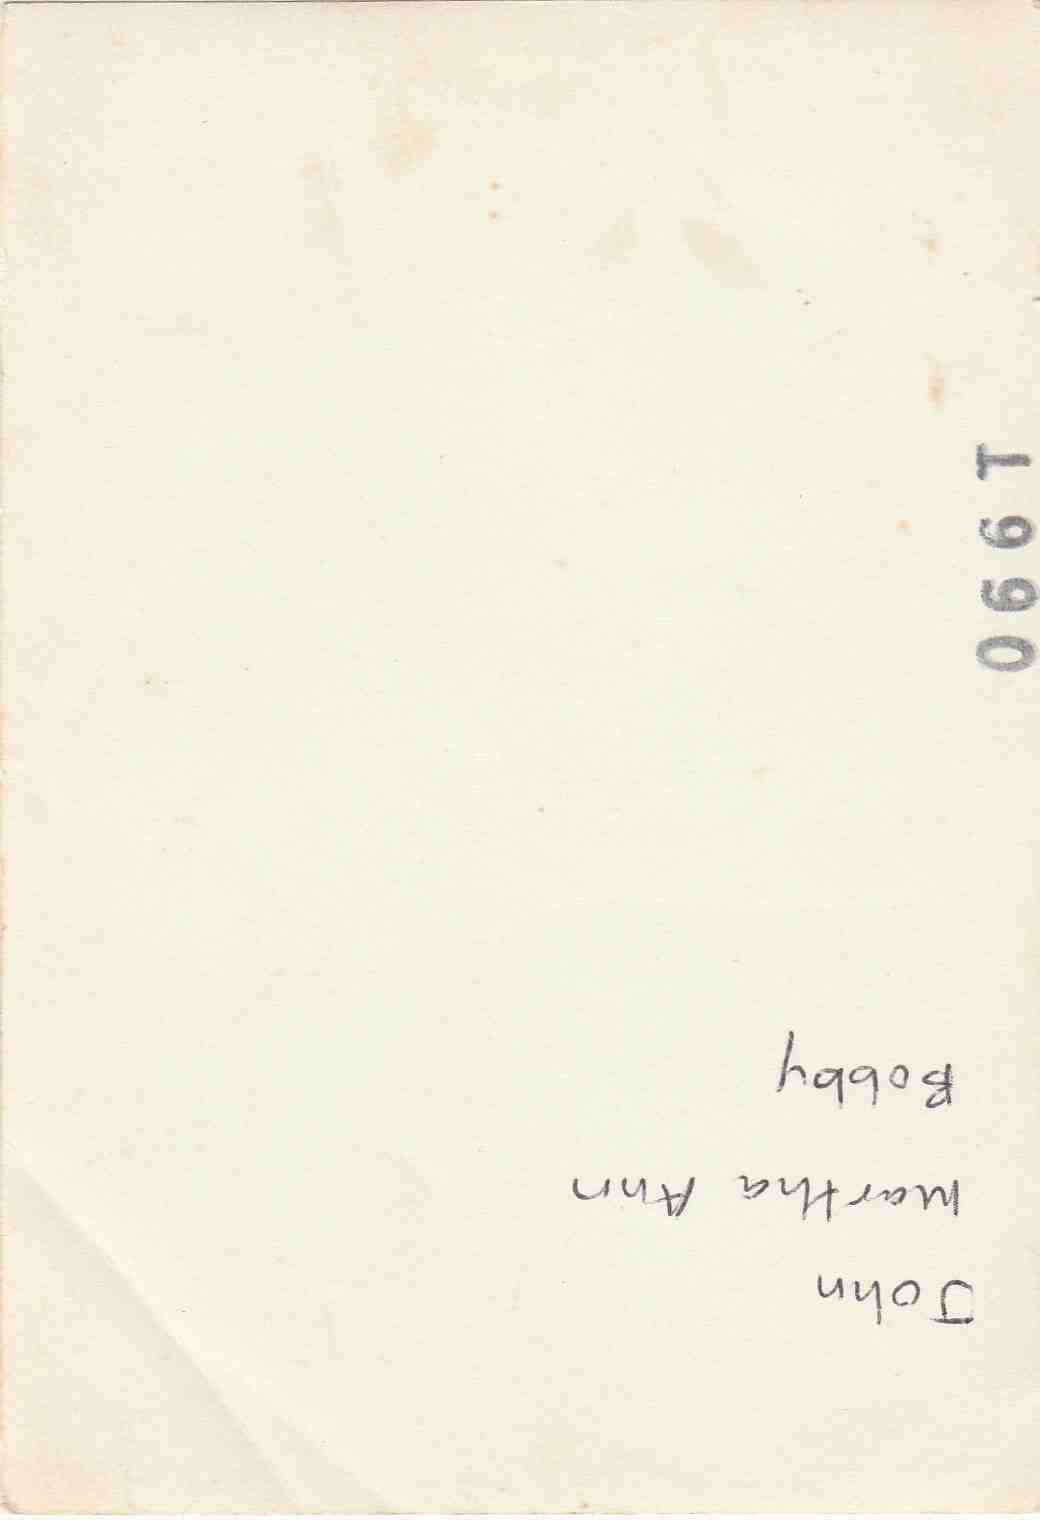 John
Martha Ann
Bobby
1990